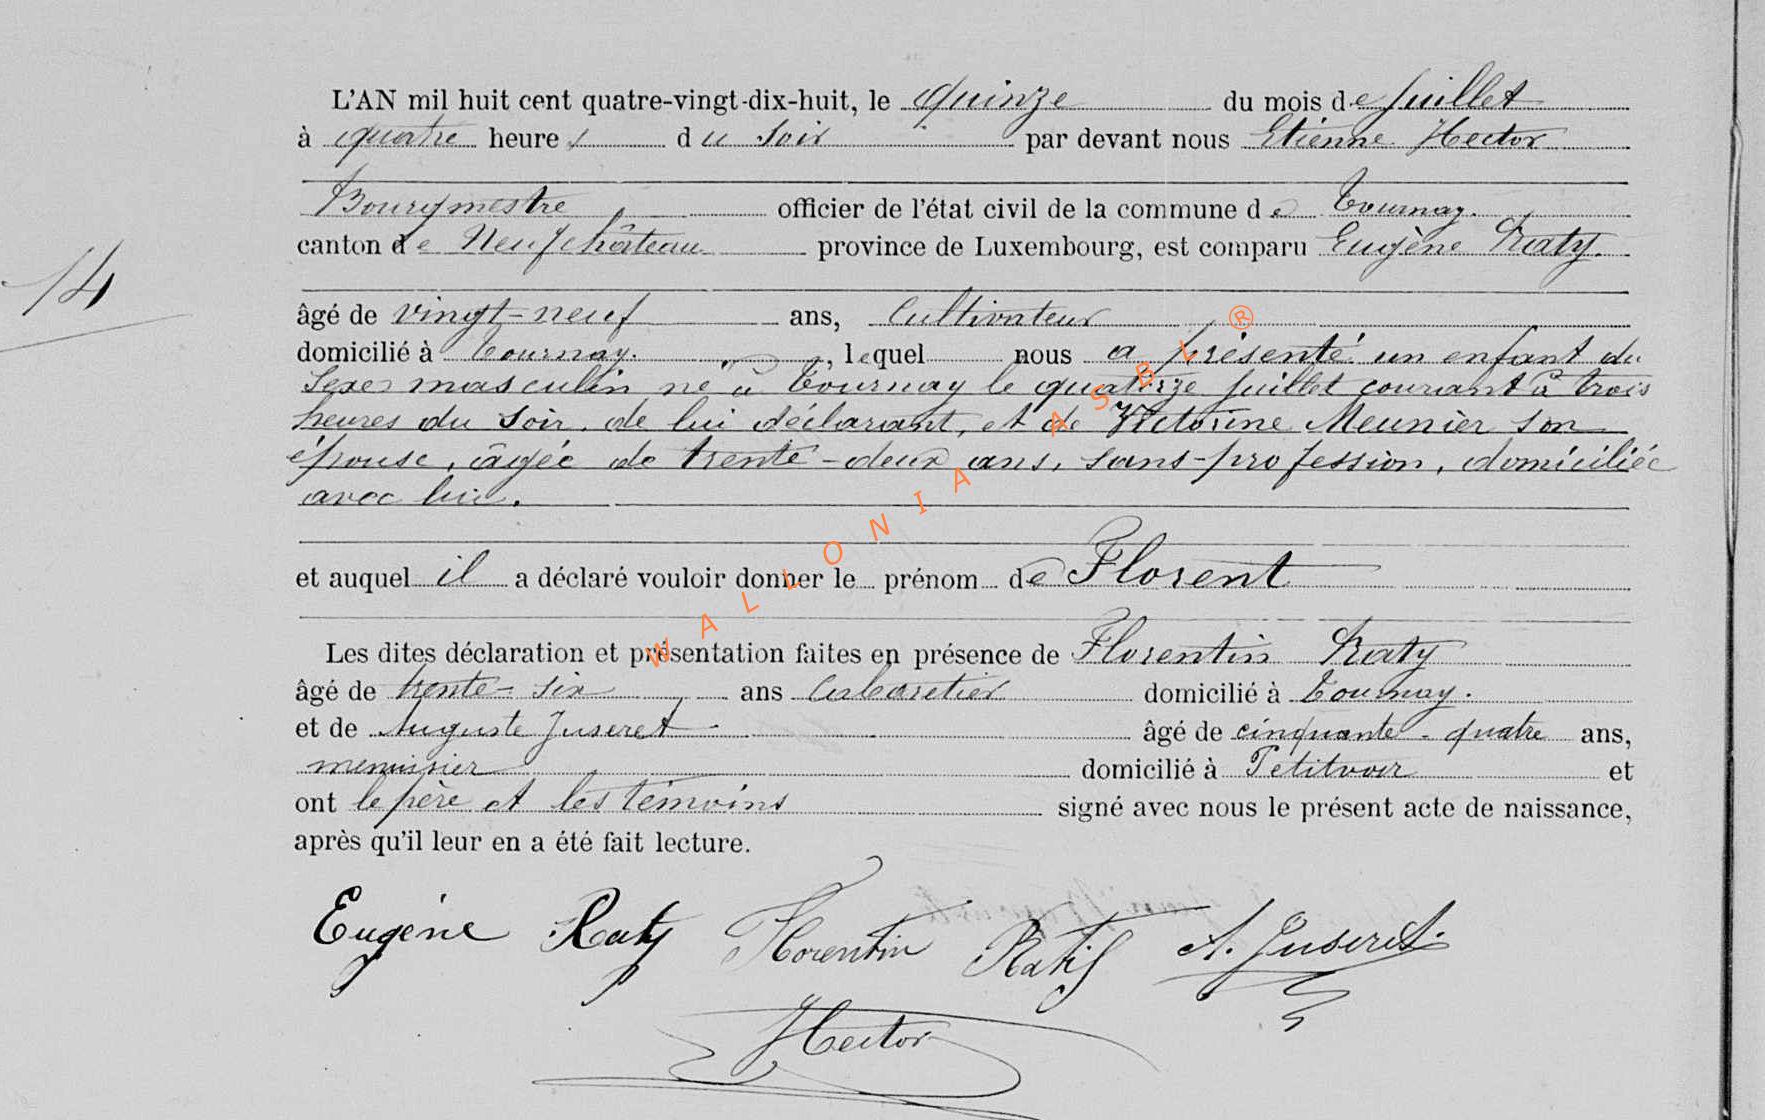 L'AN mil huit cent quatre-vingt-dix-huit, le quinze du mois de Juillet
à quatre heures du soir par devant nous Etienne Hector
Bourgmestre officier de l'état civil de la commune de Tournay.
canton de Neufchâteau province de Luxembourg, est comparu Eugène Raty.
14
âgé de vingt-neuf ans, Cultivateur
domicilié à Tournay. , lequel nous a présenté un enfant du
sexe masculin né à Tournay le quatorze Juillet courant à trois
heures du soir, de lui déclarant, et de Victorine Meunier son
épouse, âgée de trente-deux ans, sans-profession, domiciliée
avec lui.
et auquel il a déclaré vouloir donner le prénom de Florent
Les dites déclaration et présentation faites en présence de Florentin Raty
âgé de trente-six ans Cabaretier domicilié à Tournay.
et de Auguste Juseret âgé de cinquante-quatre ans,
menuisier domicilié à Petitvoir et
ont le père et les témoins signé avec nous le présent acte de naissance,
après qu'il leur en a été fait lecture.
Eugène Raty Florentin Raty A. Juseret.
Hector
WALLONIA ASBL ®